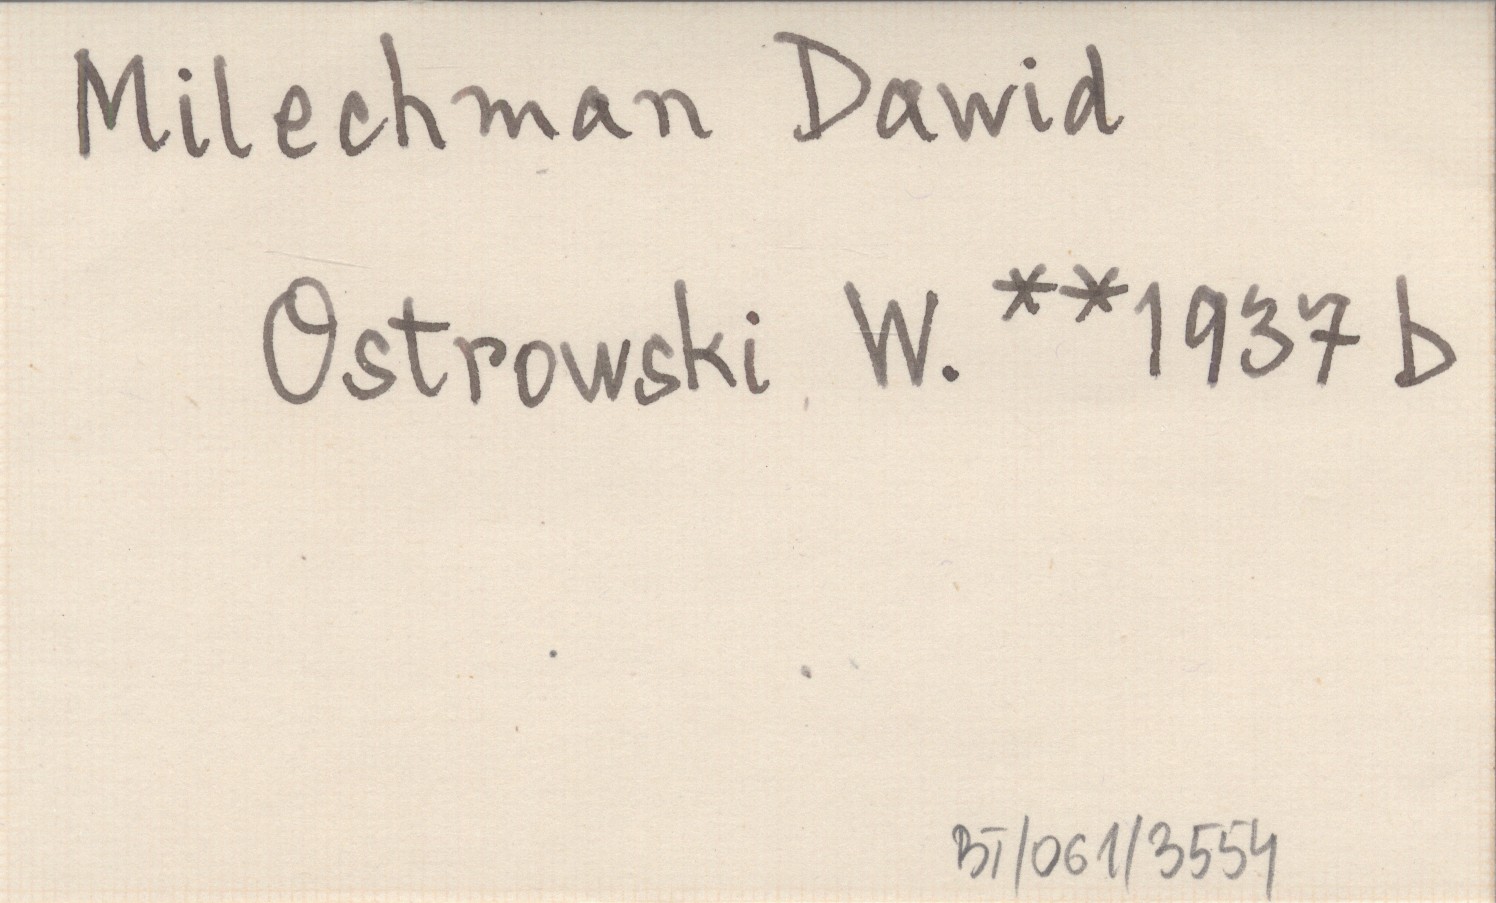 Milechman Dawid
Ostrowski W. **1937 b
BT/061/3554